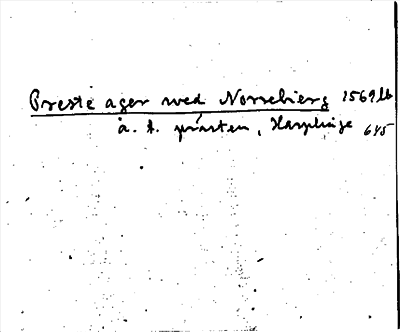 Preste ager wed Norrebierg 1569 lb
å. t. prästen, Harplinge 645